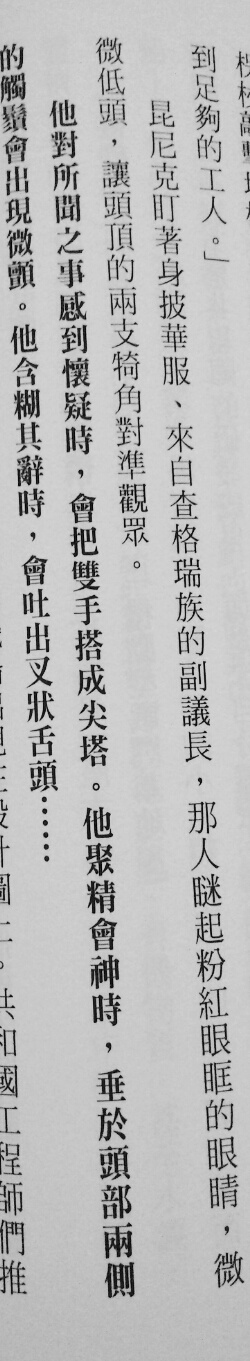 到足夠的工人。」
昆尼克盯著身披華服、來自查格瑞族的副議長，那人瞇起粉紅眼眶的眼睛，微
微低頭，讓頭頂的兩支犄角對準觀眾。
他對所聞之事感到懷疑時，會把雙手搭成尖塔。他聚精會神時，垂於頭部兩側
的觸鬚會出現微顫。他含糊其辭時，會吐出叉狀舌頭……
設計圖上。共和國工程師們推